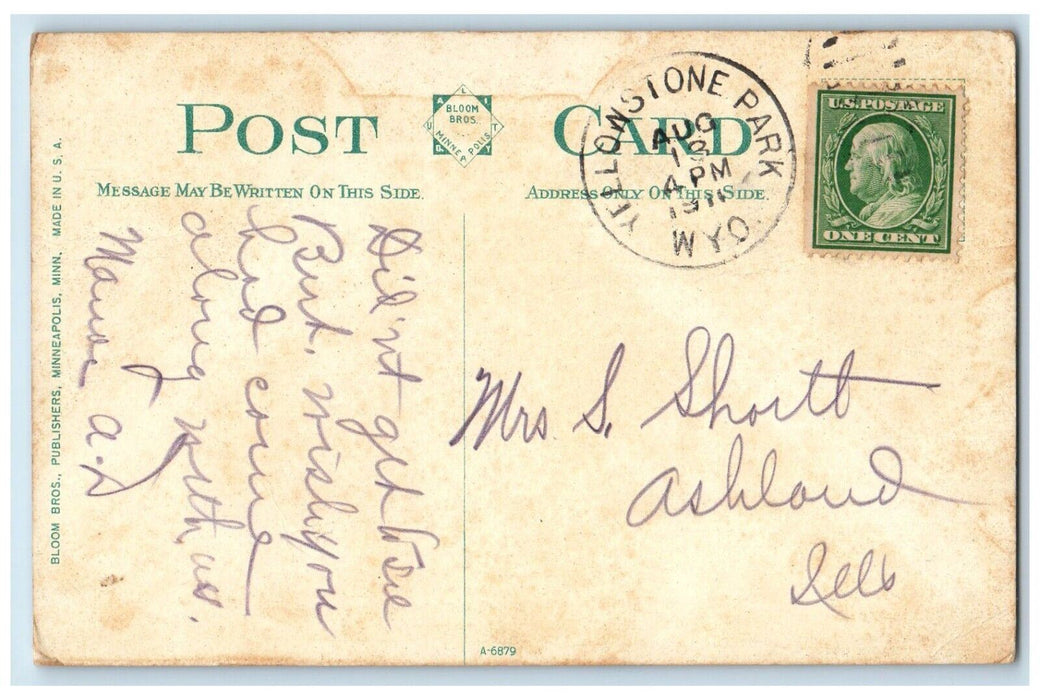 POST CARD
BLOOM BROS.
MINNEAPOLIS
MESSAGE MAY BE WRITTEN ON THIS SIDE.
ADDRESS ONLY ON THIS SIDE.
YELLOWSTONE PARK
AUG
4 PM
1911
WYO.
U.S. POSTAGE
ONE CENT
Did'nt get to see
Bert, wish you
had come
along with us.
Mrs. S. Shortt
Ashland
BLOOM BROS., PUBLISHERS, MINNEAPOLIS, MINN. MADE IN U.S.A.
A-6879